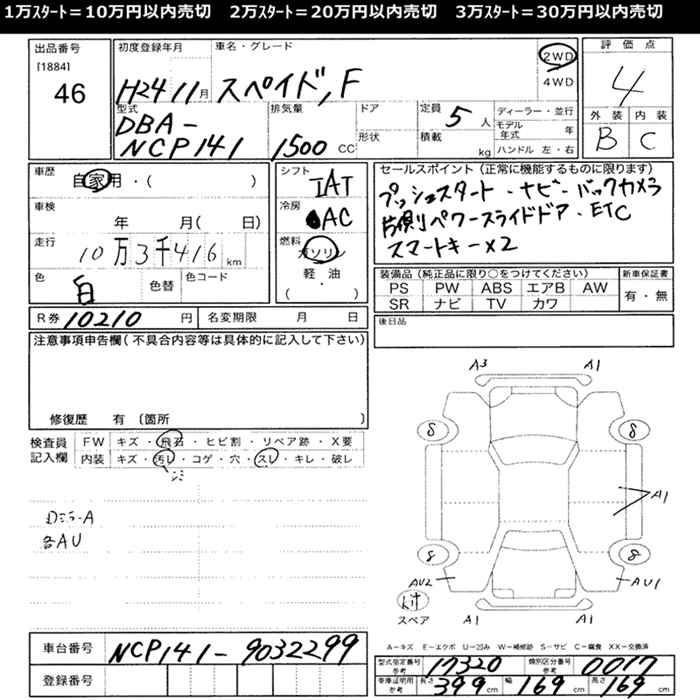 1万ｽﾀｰﾄ＝10万円以内売切　2万ｽﾀｰﾄ＝20万円以内売切　3万ｽﾀｰﾄ＝30万円以内売切
出品番号
[1884]
46
初度登録年月
車名・グレード
H24 11月 スペイド, F
2WD
4WD
評価点
4
外装 内装
B C
型式
DBA-
NCP141
排気量
1500 CC
ドア
形状
定員 5 人
積載 kg
ディーラー・並行
モデル年式 年
ハンドル 左・右
車歴
自家用・( )
車検
年 月( 日)
走行
10万3千416 km
色
白
色替
色コード
シフト
IAT
冷房
AC
燃料
ガソリン
軽・油
( )
セールスポイント（正常に機能するものに限ります）
プッシュスタート・ナビ・バックカメラ
片側パワースライドドア・ETC
スマートキーx2
装備品（純正品に限り○をつけてください）
PS PW ABS エアB AW
SR ナビ TV カワ
新車保証書
有・無
R券 10210 円 名変期限 月 日
後日品
注意事項申告欄（不具合内容等は具体的に記入して下さい）
修復歴 有〔箇所 〕
検査員
記入欄
FW キズ・飛石・ヒビ割・リペア跡・X要
内装 キズ・汚レ・コゲ・穴・スレ・キレ・破レ
各AU
A3 A1
8 8
A1
8 8
AU2 AU1
スペア
A1 A1
A－キズ E－エクボ U－凹み W－補修跡 S－サビ C－腐食 XX－交換済
車台番号 NCP141-9032299
登録番号
型式指定番号 参考 17320 類別区分番号 参考 0017
車庫証明用 参考 長さ 399 cm 幅 169 cm 高さ 169 cm